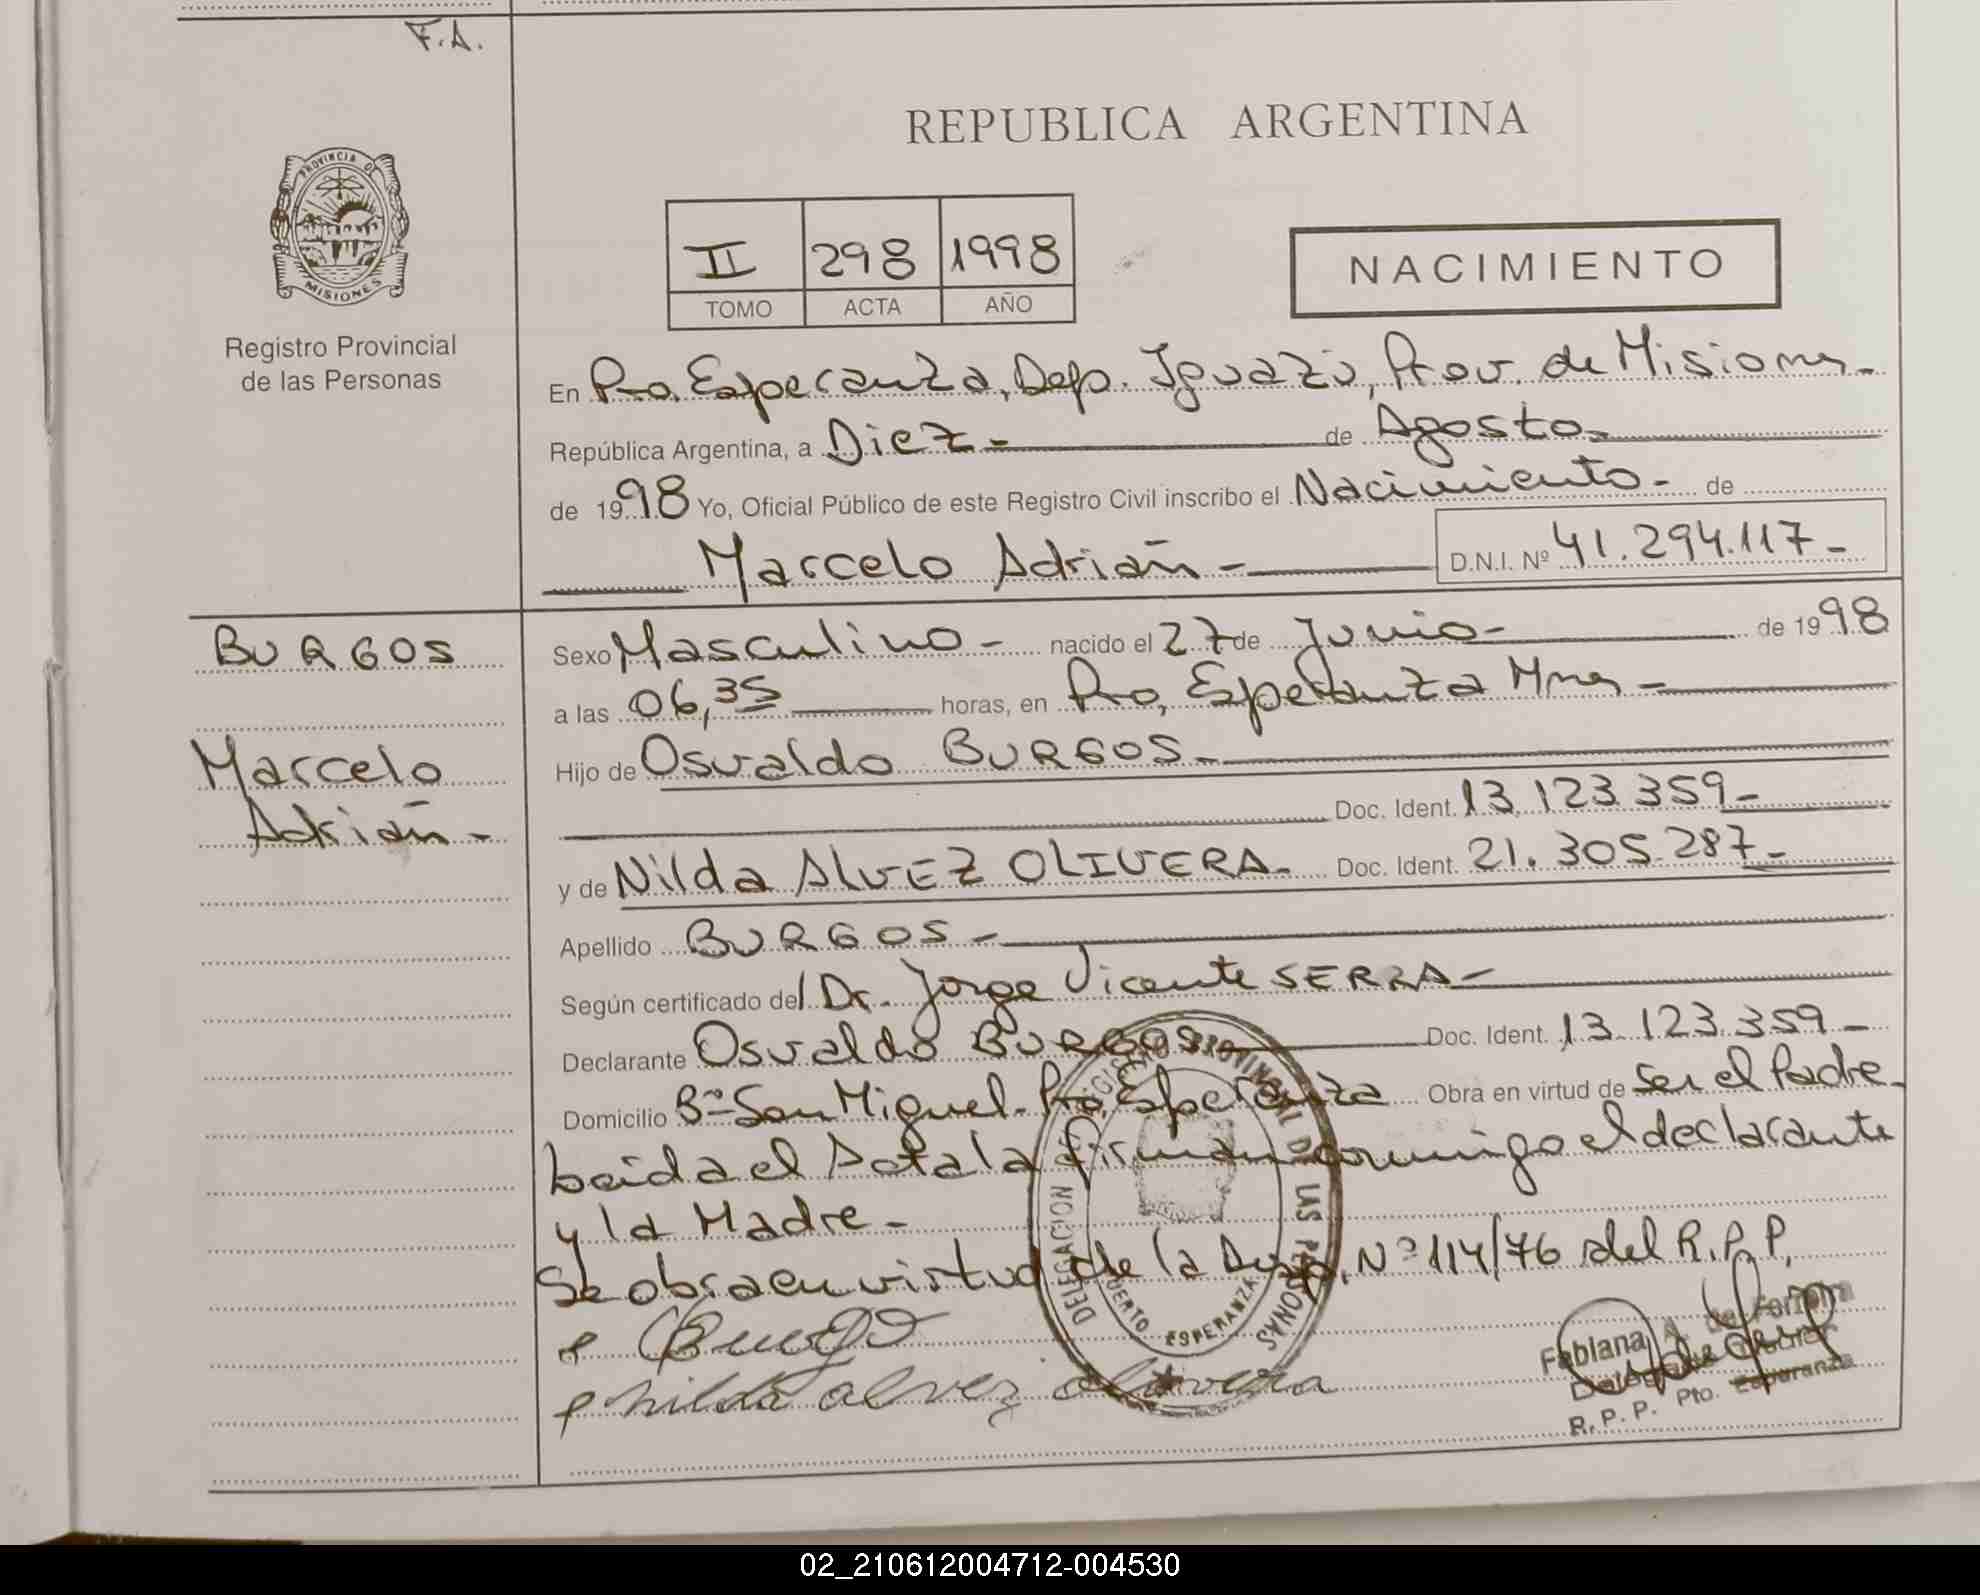 F.A.
REPUBLICA ARGENTINA
PROVINCIA DE
MISIONES
Registro Provincial
de las Personas
II 298 1998
TOMO ACTA AÑO
NACIMIENTO
En Pto. Esperanza, Dep. Iguazú, Prov. de Misiones.-
República Argentina, a Diez - de Agosto.-
de 1998 Yo, Oficial Público de este Registro Civil inscribo el Nacimiento - de
Marcelo Adrián - D.N.I. Nº 41.294.117-
BURGOS
Marcelo
Adrián -
Sexo Masculino - nacido el 27 de Junio - de 1998
a las 06,35 horas, en Pto, Esperanza Mnes -
Hijo de Osvaldo BURGOS.-
Doc. Ident. 13.123.359-
y de Nilda ALVEZ OLIVERA. Doc. Ident. 21.305.287-
Apellido BURGOS -
Según certificado del Dr. Jorge Vicente SERRA -
Declarante Osvaldo BURGOS Doc. Ident. 13.123.359-
Domicilio Bº San Miguel. Pto, Esperanza Obra en virtud de ser el Padre.
Leida el Acta la firman conmigo el declarante
y la Madre -
Se obra en virtud de la Disp. Nº 114/76 del R.P.P.
nilda alvez olivera
DELEGACION REGISTRO PROVINCIAL DE LAS PERSONAS
PUERTO ESPERANZA
Fabiana A. de Ferreira
R.P.P. Pto. Esperanza
02_210612004712-004530